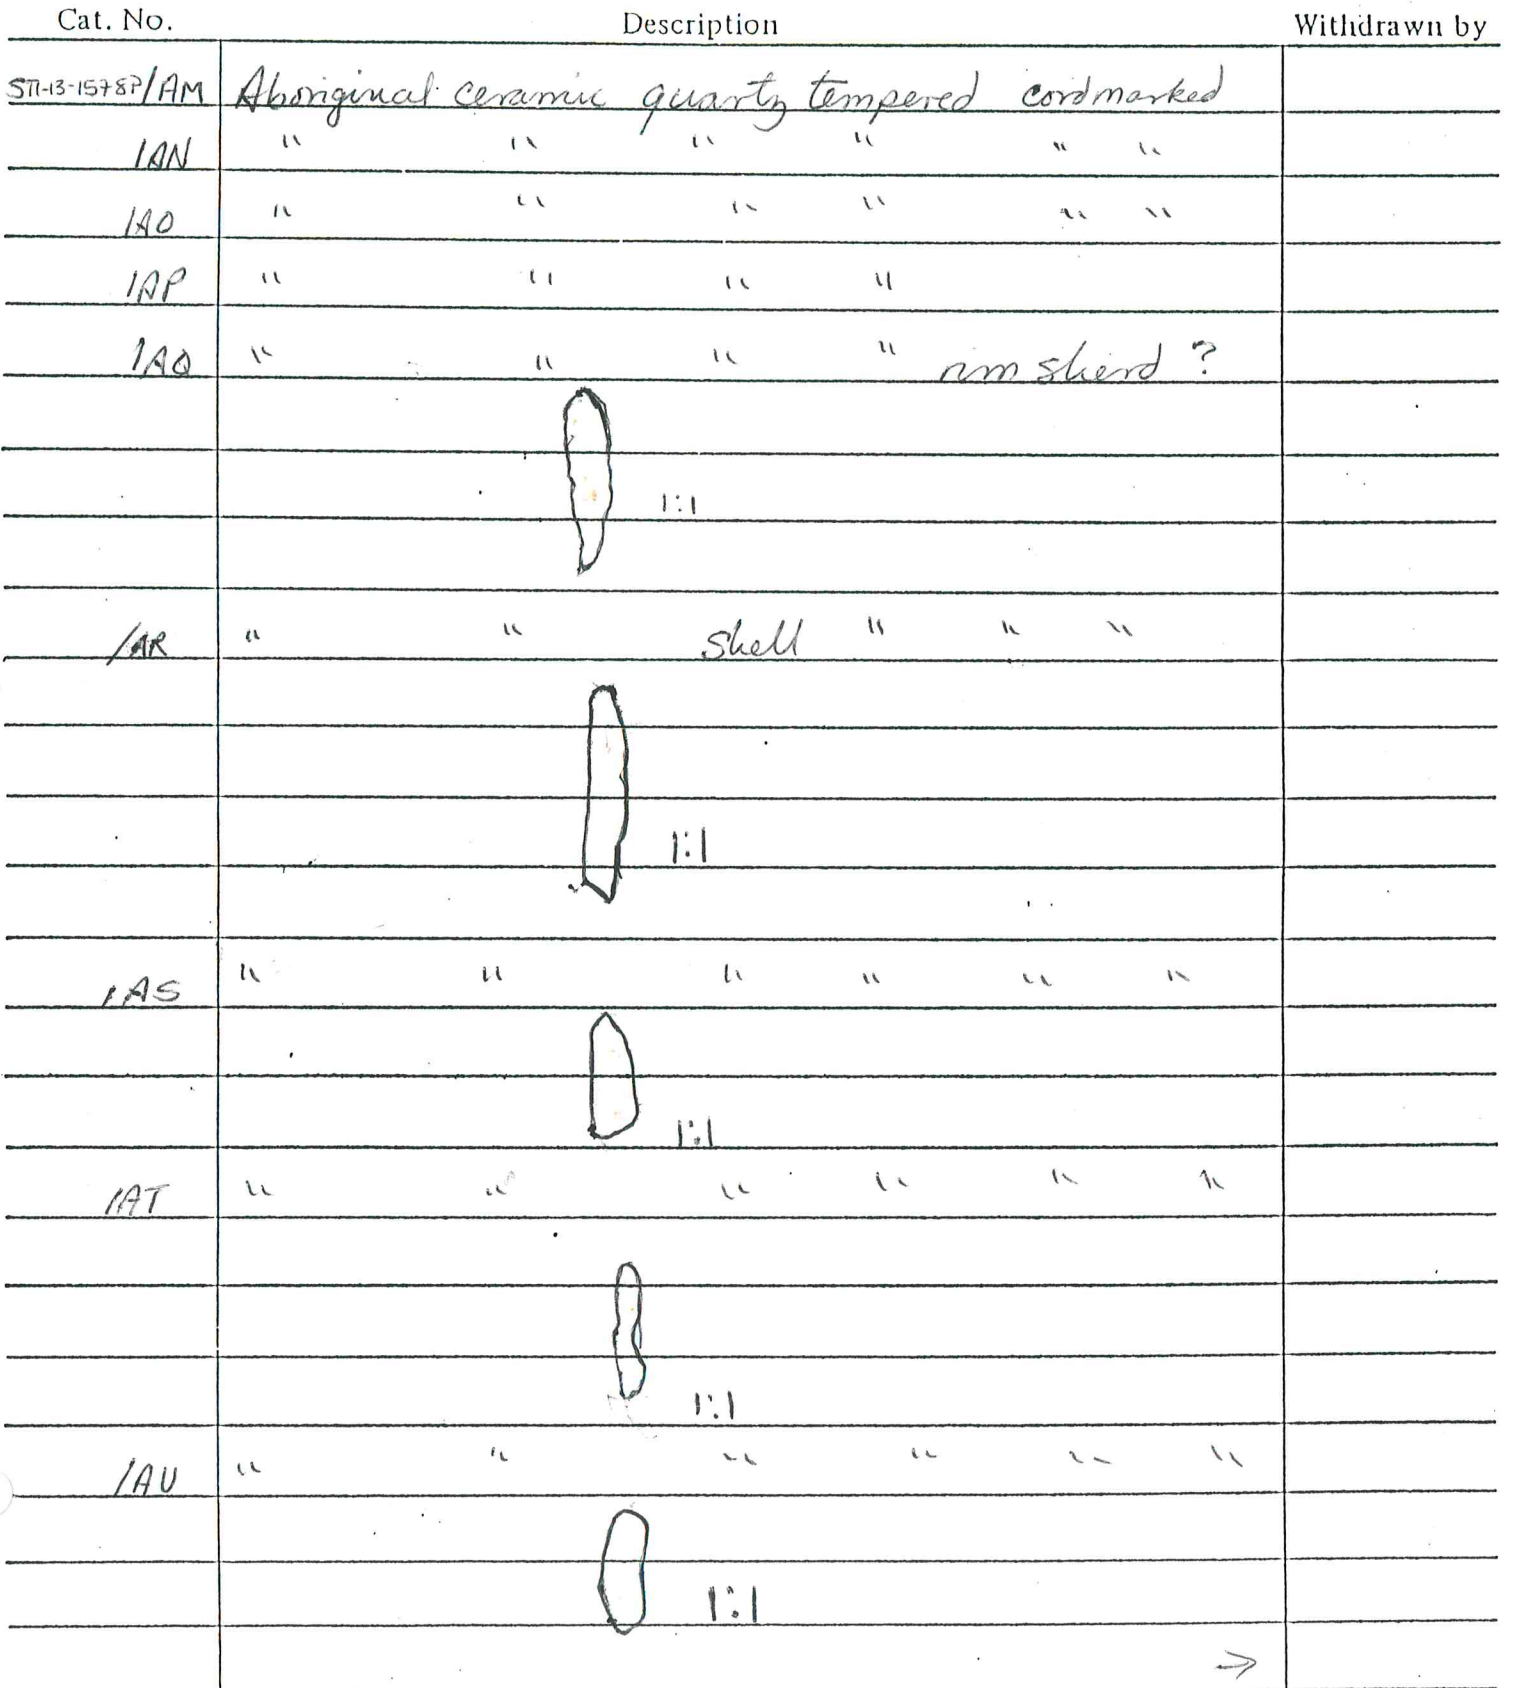 Cat. No. Description Withdrawn by
STI-13-1578P/AM Aboriginal ceramic quartz tempered cordmarked
/AN " " " " " "
/AO " " " " " "
/AP " " " "
/AQ " " " " rim sherd ?
1:1
/AR " " shell " " "
1:1
/AS " " " " " "
1:1
/AT " " " " " "
1:1
/AU " " " " " "
1:1
→